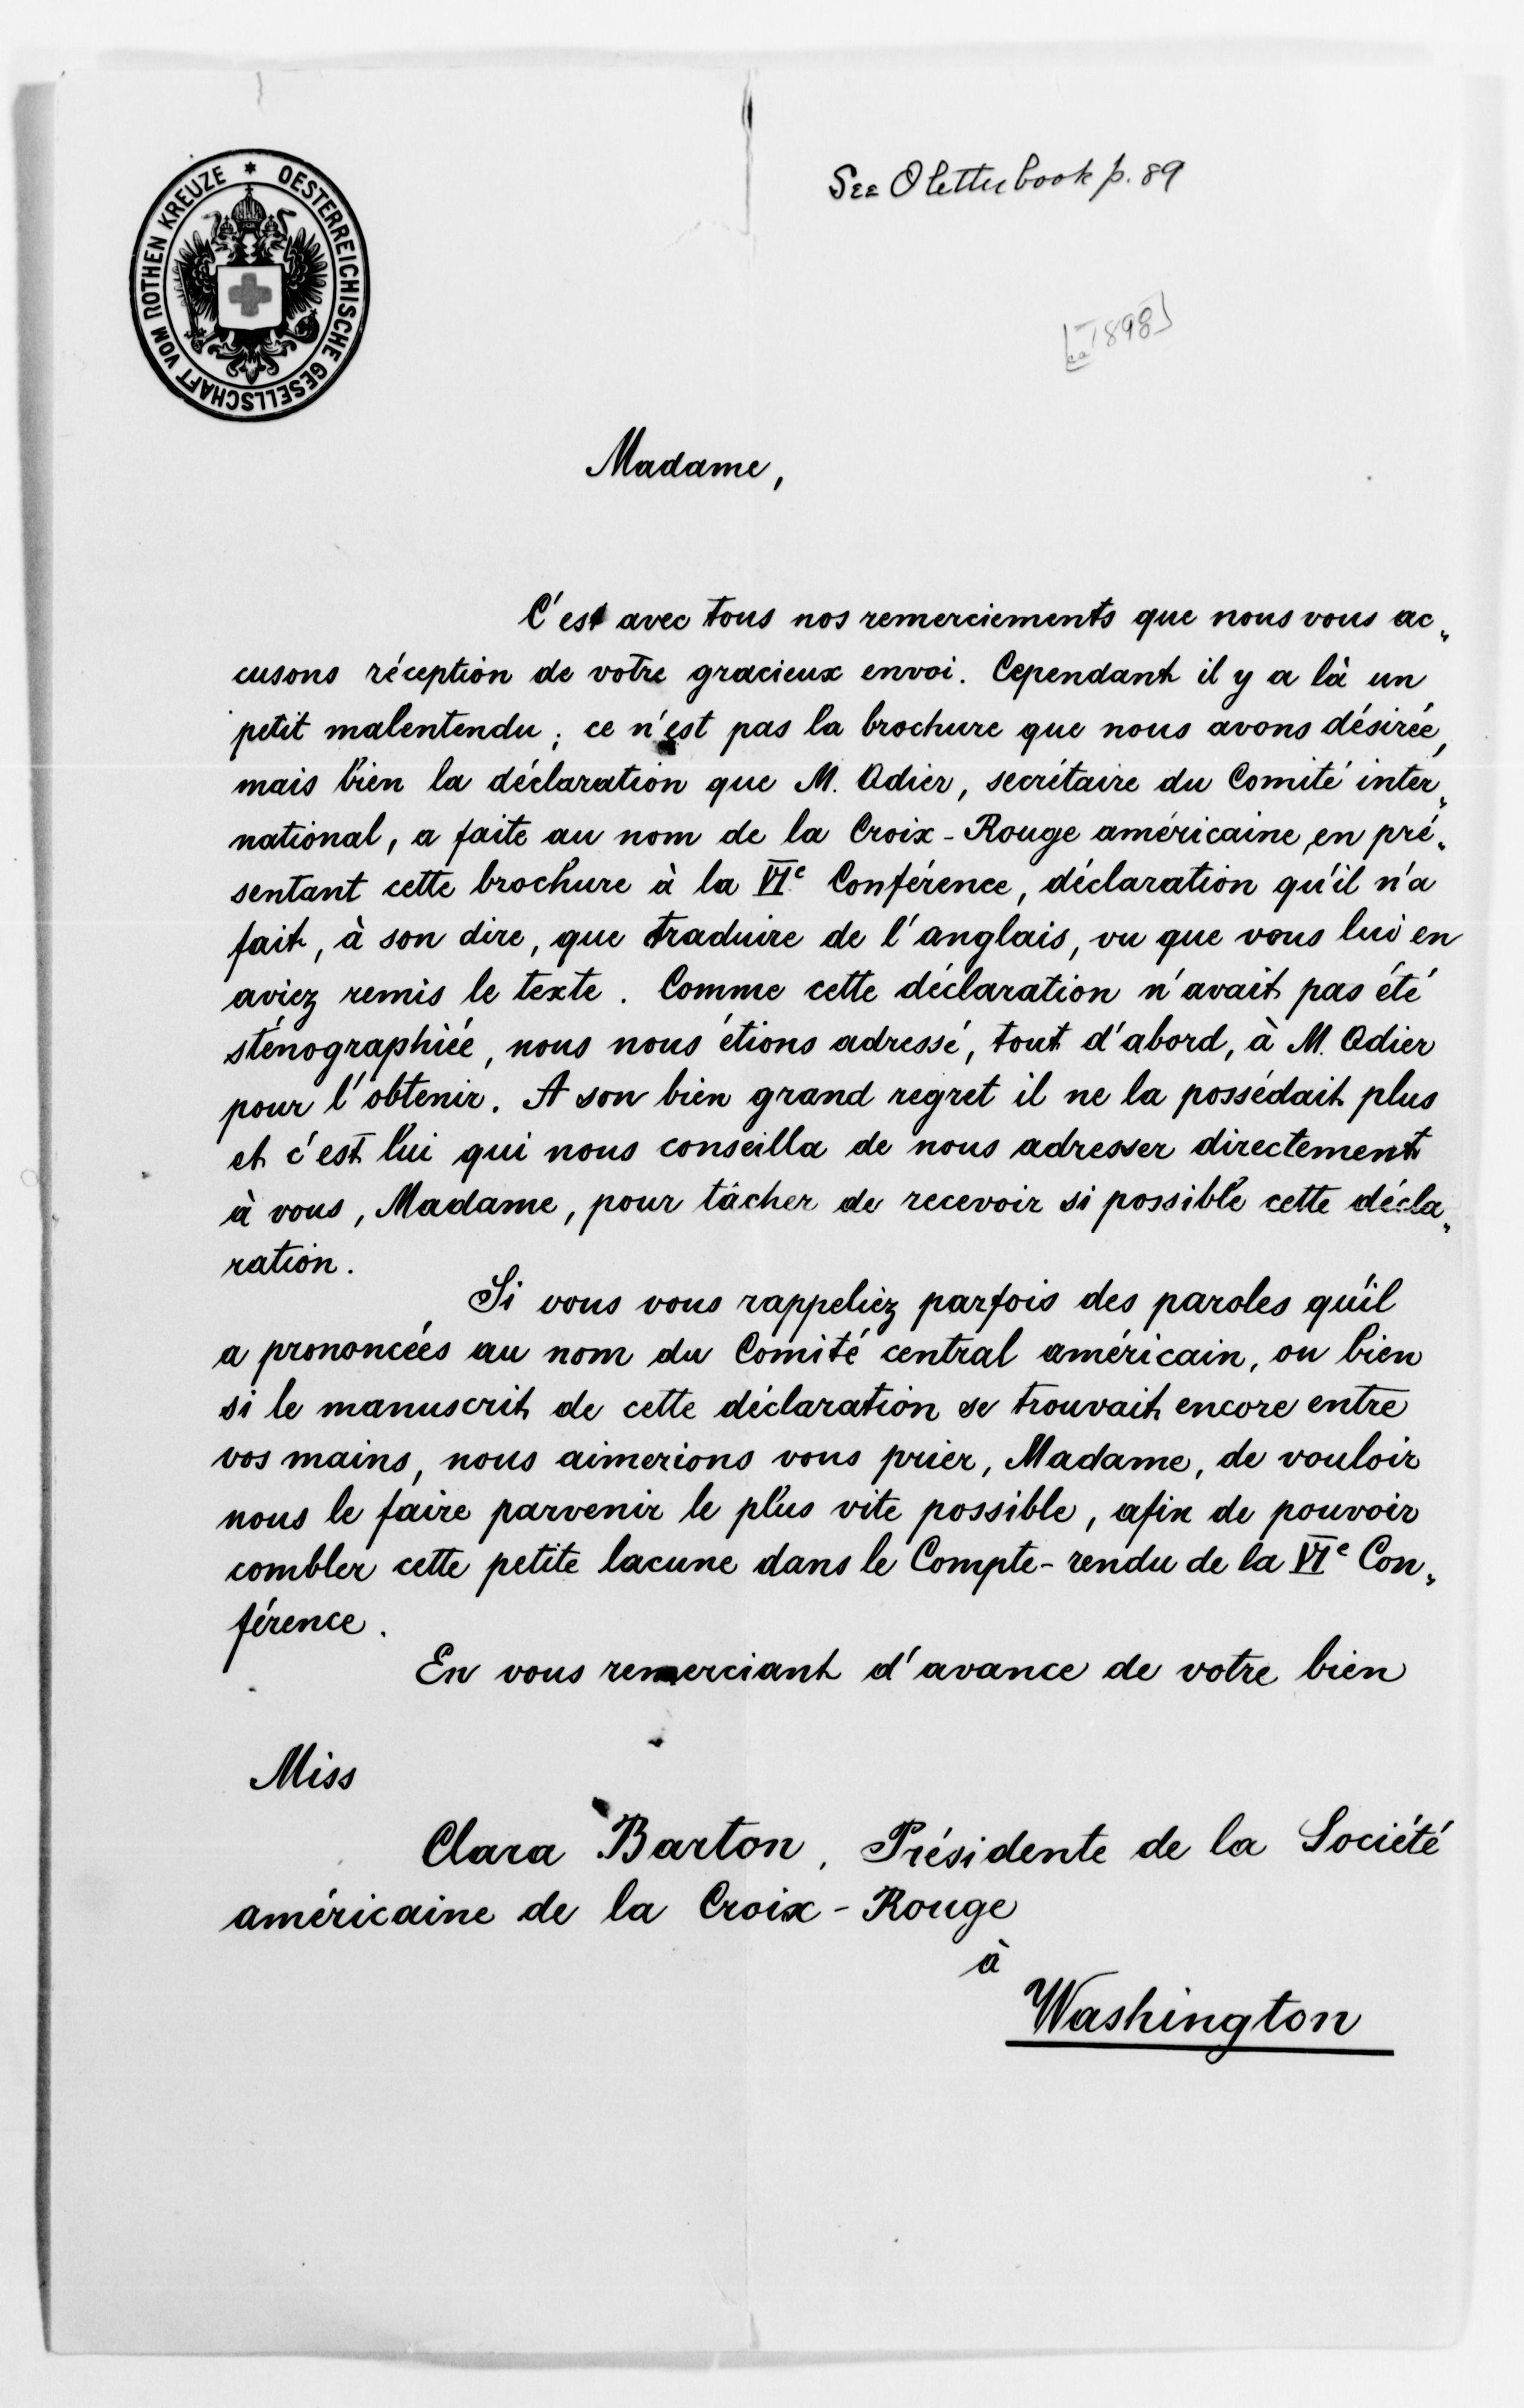 OESTERREICHISCHE GESELLSCHAFT VOM ROTHEN KREUZE
See O letterbook p. 89
[ca 1898]
Madame,
C'est avec tous nos remerciements que nous vous ac„
cusons réception de votre gracieux envoi. Cependant il y a là un
petit malentendu; ce n'est pas la brochure que nous avons désirée,
mais bien la déclaration que M. Odier, secrétaire du Comité inter„
national, a faite au nom de la Croix-Rouge américaine, en pré„
sentant cette brochure à la VIe Conférence, déclaration qu'il n'a
fait, à son dire, que traduire de l'anglais, vu que vous lui en
aviez remis le texte. Comme cette déclaration n'avait pas été
sténographiée, nous nous étions adressé, tout d'abord, à M. Odier
pour l'obtenir. A son bien grand regret il ne la possédait plus
et c'est lui qui nous conseilla de nous adresser directement
à vous, Madame, pour tâcher de recevoir si possible cette décla„
ration.
Si vous vous rappeliez parfois des paroles qu'il
a prononcées au nom du Comité central américain, ou bien
si le manuscrit de cette déclaration se trouvait encore entre
vos mains, nous aimerions vous prier, Madame, de vouloir
nous le faire parvenir le plus vite possible, afin de pouvoir
combler cette petite lacune dans le Compte-rendu de la VIe Con„
férence.
En vous remerciant d'avance de votre bien
Miss
Clara Barton, Présidente de la Société
américaine de la Croix-Rouge
à
Washington